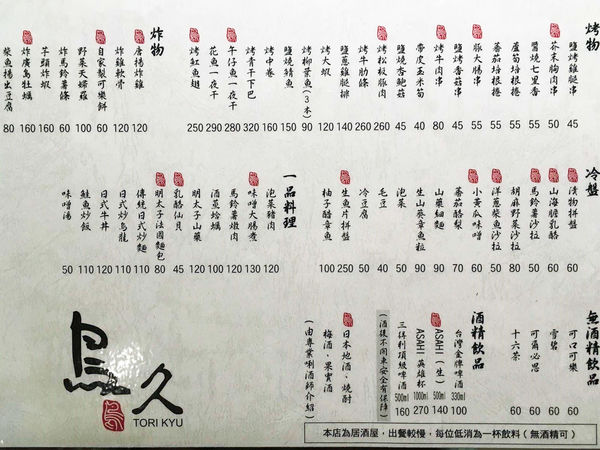 烤物
鹽燒雞腿串 45
芥末胸肉串 50
醬燒七里香 55
蘆筍培根捲 55
蕃茄培根捲 55
豚大腸串 55
鹽烤香菇串 45
烤牛肉串 80
帶皮玉米筍 40
鹽燒杏鮑菇 45
烤松板豚肉 260
烤牛肋條 260
鹽蔥雞腿排 140
烤大蝦 120
烤柳葉魚(3本) 90
鹽燒鯖魚 150
烤中卷 160
烤青干下巴 320
午仔魚一夜干 280
花魚一夜干 290
烤紅魚翅 250
炸物
唐揚炸雞 120
炸雞軟骨 120
自家製可樂餅 60
野菜天婦羅 100
炸馬鈴薯條 60
芋頭炸蝦 160
炸廣島牡蠣 160
柴魚揚出豆腐 80
冷盤
漬物拼盤 60
山海膽乳酪 60
馬鈴薯沙拉 50
胡麻野菜沙拉 80
洋蔥柴魚沙拉 50
小黃瓜味噌 60
蕃茄酪梨 70
山藥細麵 90
生山葵章魚粒 90
泡菜 50
毛豆 40
冷豆腐 50
生魚片拼盤 250
柚子醋章魚 100
一品料理
泡菜豬肉 120
味噌大腸煮 130
馬鈴薯燉肉 120
酒蒸蛤蠣 100
明太子山藥 120
乳酪仙貝 45
明太子法國麵包 80
傳統日式炒麵 110
日式炒烏龍 110
日式牛丼 120
鮭魚炒飯 110
味噌湯 50
無酒精飲品
可口可樂 60
雪碧 60
可爾必思 60
十六茶 60
酒精飲品
台灣金牌啤酒 330ml 100
ASAHI(生) 500ml 140
ASAHI 英雄杯 1000ml 270
三得利頂級啤酒 500ml 160
(酒後不開車安全有保障)
日本地酒、燒酎
梅酒、果實酒
(由專業唎酒師介紹)
鳥久
TORI KYU
本店為居酒屋，出餐較慢，每位低消為一杯飲料(無酒精可)